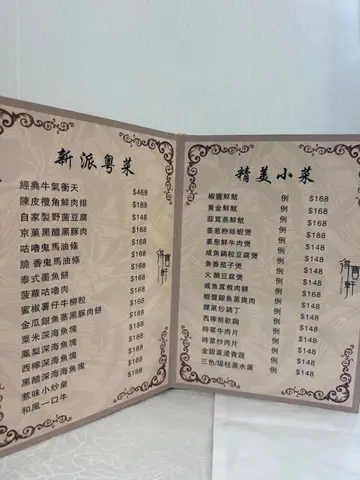 新派粵菜
經典牛氣衝天 $468
陳皮欖角鮮肉排 $188
自家製野菌豆腐 $148
京菓黑醋黑豚肉 $168
咕嚕鬼馬油條 $168
脆香鬼馬油條 $168
泰式墨魚餅 $168
菠蘿咕嚕肉 $168
蜜椒薯仔牛柳粒 $168
金瓜銀魚蒸馬豚肉餅 $188
粟米深海魚塊
鳳梨深海魚塊
西檸深海魚塊
黑醋深海海魚塊
惹味小炒皇
和風一口牛 $188
精美小菜
椒鹽鮮魷 例 $168
黃金鮮魷 例 $168
蒜茸蒸鮮魷 例 $168
姜葱粉絲蜆煲 例
姜葱鮮牛肉煲 例
咸魚雞粒豆腐煲 例
魚香茄子煲 例
火腩豆腐煲 例
咸魚茸煎肉餅 例
蝦醬銀魚蒸爽肉 例
欖菜炒鵝丁 例
西檸煎軟鷄 例
時菜牛肉片 例
時菜炒肉片 例 $148
金銀蛋浸青蔬 例 $148
三色/瑤柱蒸水蛋 例 $148
軒